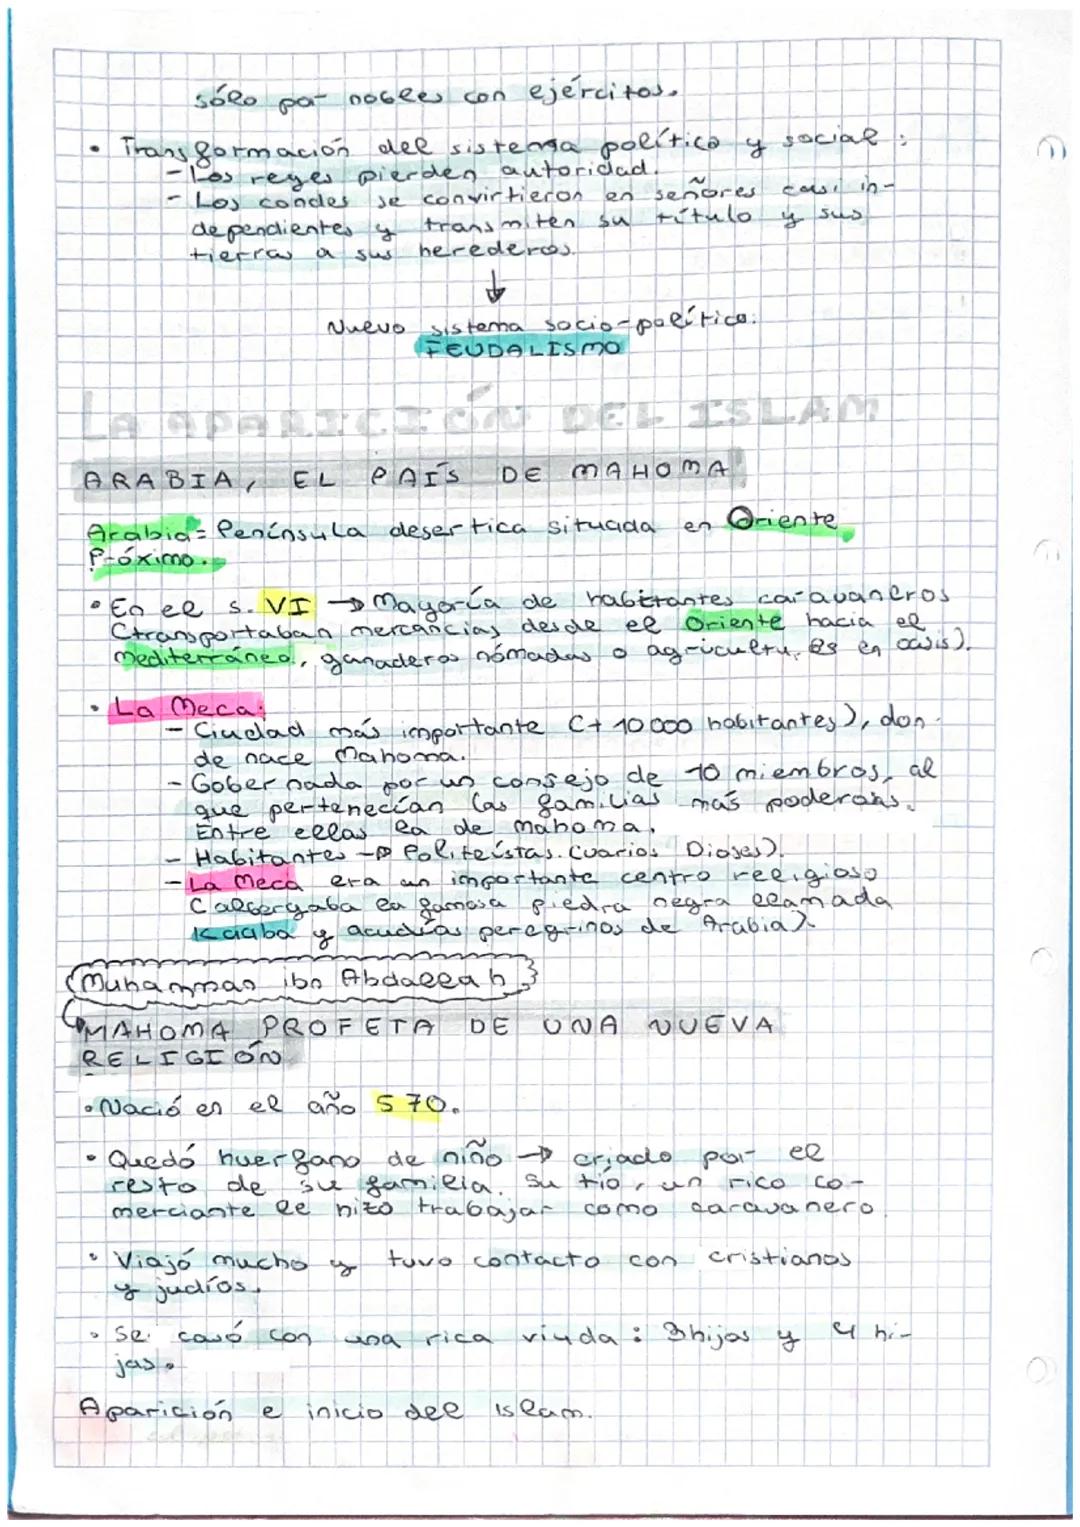 sólo por nobles con ejércitos.
• Transformación del sistema político y social:
- Los reyes pierden autoridad.
- Los condes se convirtieron en señores casi in-
dependientes y transmiten su título y sus
tierras a sus herederos.
↓
Nuevo sistema socio-político:
FEUDALISMO
LA APARICIÓN DEL ISLAM
ARABIA, EL PAÍS DE MAHOMA
Arabia = Península desertica situada en Oriente
Próximo.
• En el s. VI → Mayoría de habitantes caravaneros
(transportaban mercancías desde el Oriente hacia el
Mediterráneo, ganaderos nómadas o agricultores en oasis).
• La Meca:
- Ciudad más importante (+ 10.000 habitantes), don-
de nace Mahoma.
- Gobernada por un consejo de 10 miembros, al
que pertenecían las familias más poderosas.
Entre ellas la de mahoma.
- Habitantes → Politeístas. (varios Dioses).
- La Meca era un importante centro religioso
(albergaba la famosa piedra negra llamada
Kaaba y acudían peregrinos de Arabia).
Muhammao ibn Abdallah
MAHOMA PROFETA DE UNA NUEVA
RELIGIÓN
• Nació en el año 570.
• Quedó huerfano de niño → criado por el
resto de su familia. Su tío, un rico co-
merciante le hizo trabajar como caravanero.
• Viajó mucho y tuvo contacto con cristianos
y judíos.
• Se casó con una rica viuda: 3 hijos y 4 hi-
jas.
Aparición e inicio del Islam.